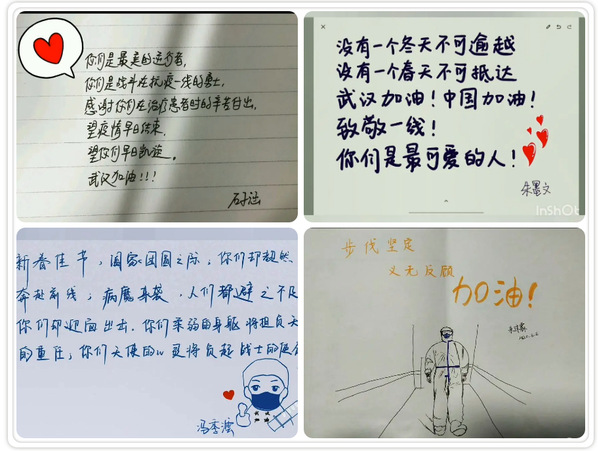 你们是最美的逆行者，
你们是战斗在抗疫一线的勇士，
感谢你们在治疗患者时的辛苦付出，
望疫情早日结束，
望你们早日凯旋。
武汉加油!!!
没有一个冬天不可逾越
没有一个春天不可抵达
武汉加油！中国加油！
致敬一线！
你们是最可爱的人！
朱墨文
InShOt
新春佳节，阖家团圆之际，你们却毅然
奔赴前线，病魔来袭，人们都避之不及
你们却迎面出击，你们柔弱的身躯将担负天
的重任，你们天使的心灵将负起战士的使命
冯季滢
步伐坚定
义无反顾
加油!